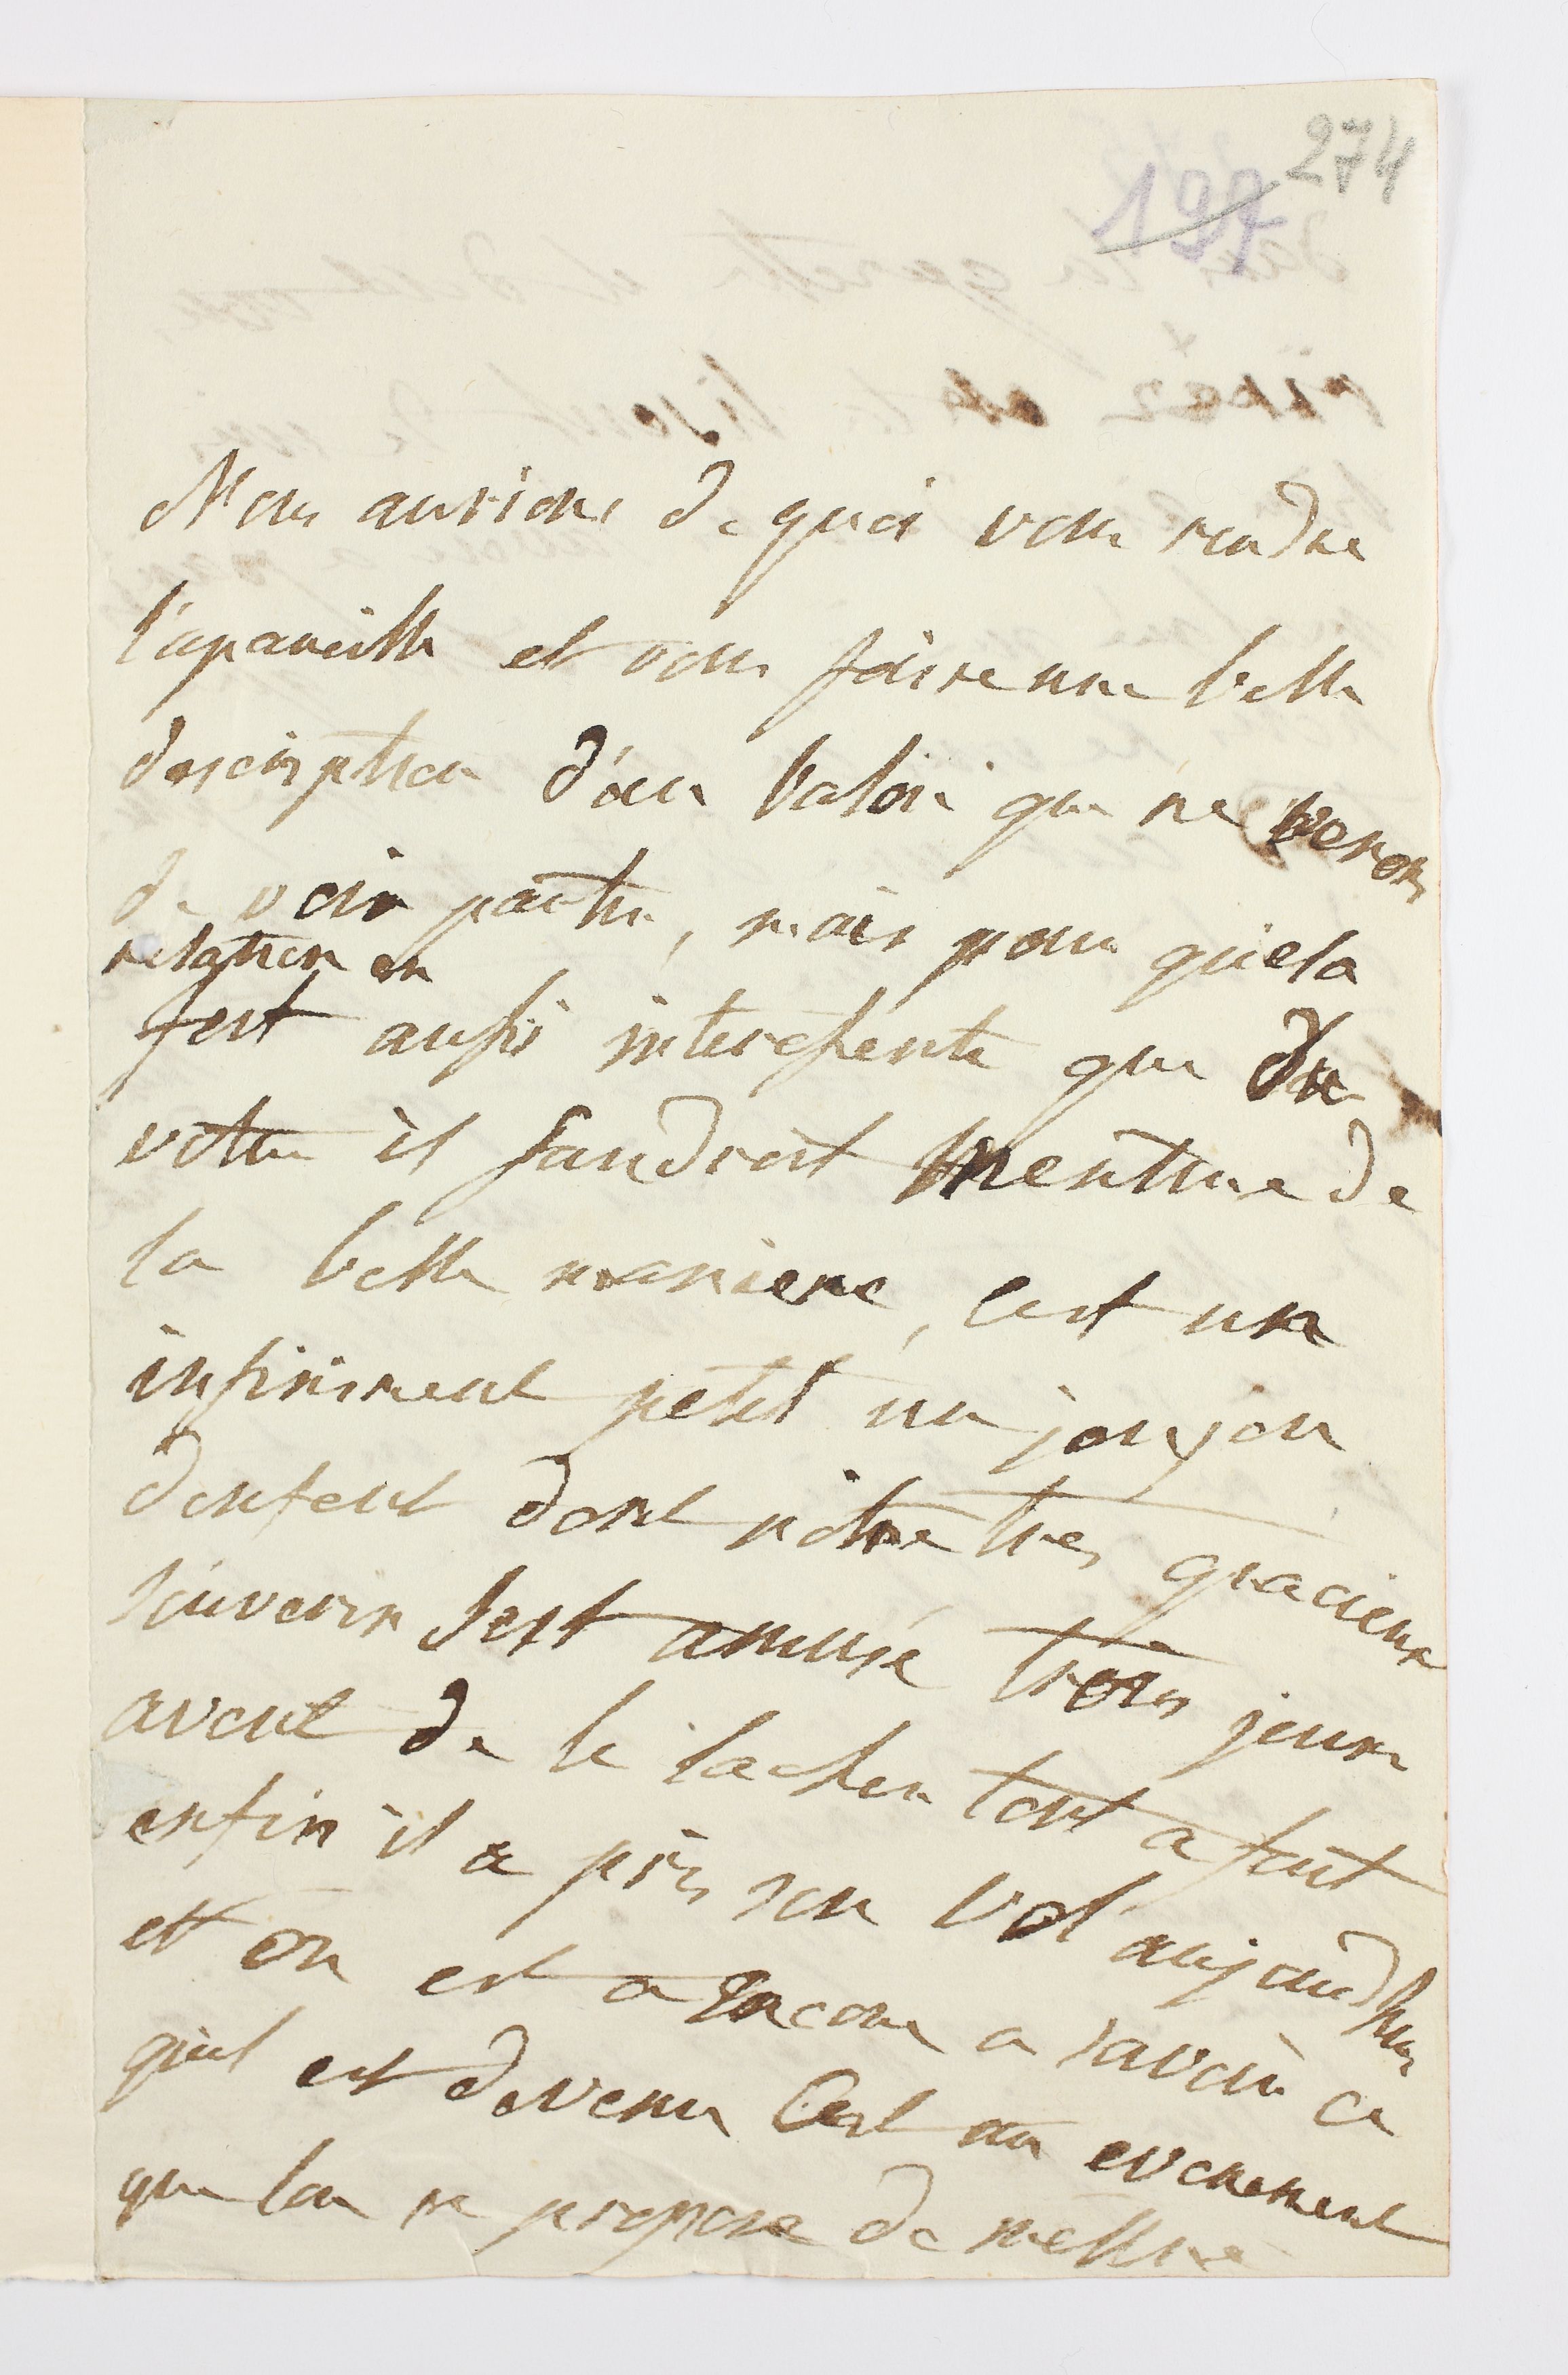 274
197
Nous aurions de quoi vous rendre
l'apareille et vous faire une belle
descirption d'un balon que ne venons
de voir partir, mais pour quela
relation en
fut aussi interessente que du
votre il faudroit mentire de
la belle maniere, cest un
infiniment petit un joujou
denfent dont notre tres gracieux
souverin sest amusé trois jours
avent de le lacher tout a fait
enfin il a pris son vol aujourdhui
et on est a encore a savoir ce
quil est devenu Cest un evenement
que lon se propose de mettre